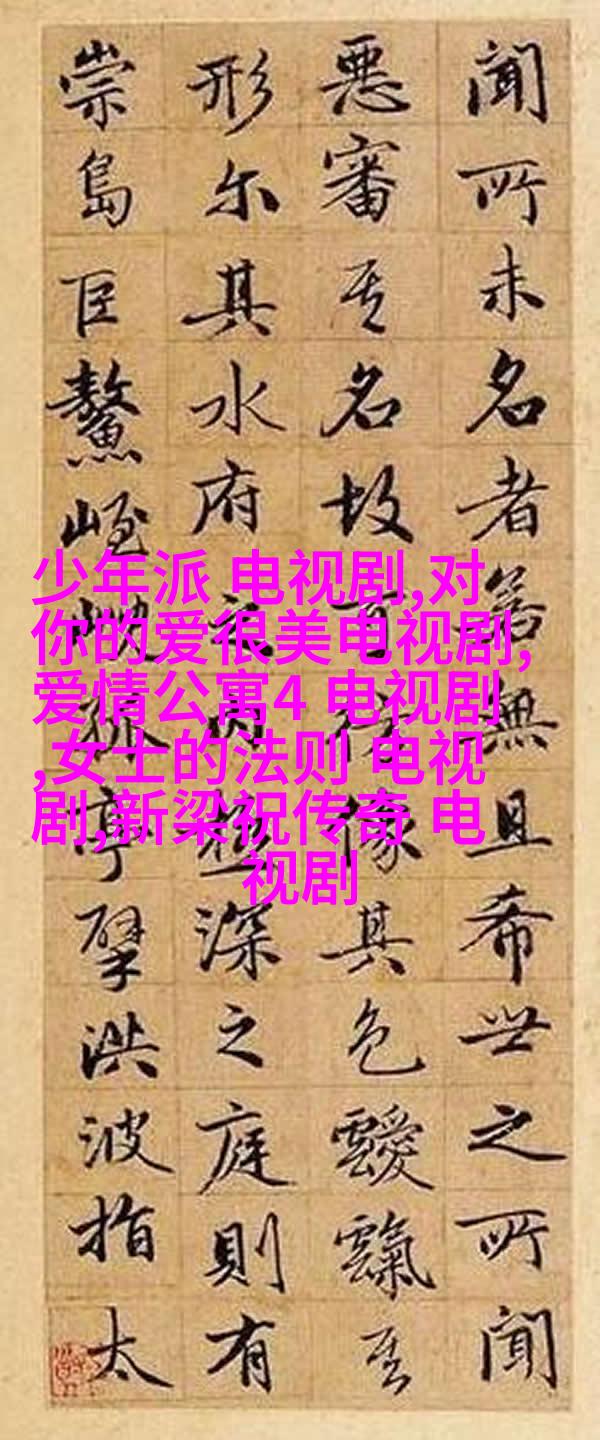 聞所未名者若無且希世之所聞
惡審其名故像其色靉霼其
形尔其水府之內極深之庭則有
崇島巨鰲峌孤亭擘洪波指太
少年派 电视剧,对
你的爱很美电视剧,
爱情公寓4 电视剧
,女士的法则 电视
剧,新梁祝传奇 电
视剧